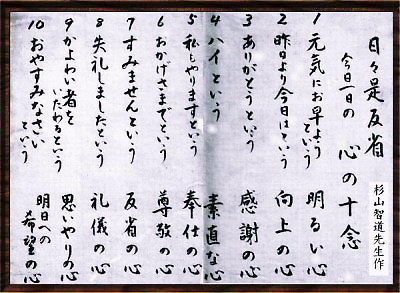 日々是反省
今日一日の 心の十念
杉山智道先生作
1 元気にお早よう
という 明るい心
2 昨日より今日はという 向上の心
3 ありがとうという 感謝の心
4 ハイという 素直な心
5 私もやりますという 奉仕の心
6 おかげさまでという 尊敬の心
7 すみませんという 反省の心
8 失礼しましたという 礼儀の心
9 かよわい者を
いたわるという 思いやりの心
10 おやすみなさい
という 明日への
希望の心